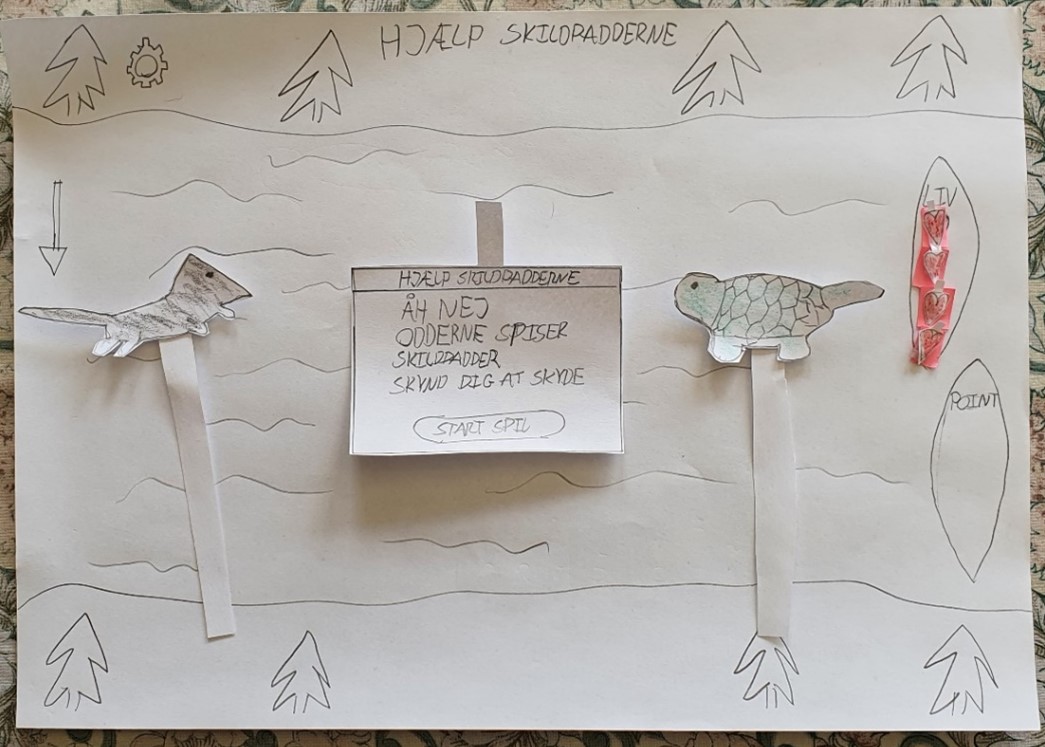 HJÆLP SKILDPADDERNE
LIV
HJÆLP SKILDPADDERNE
ÅH NEJ
ODDERNE SPISER
SKILDPADDER
SKYND DIG AT SKYDE
START SPIL
POINT